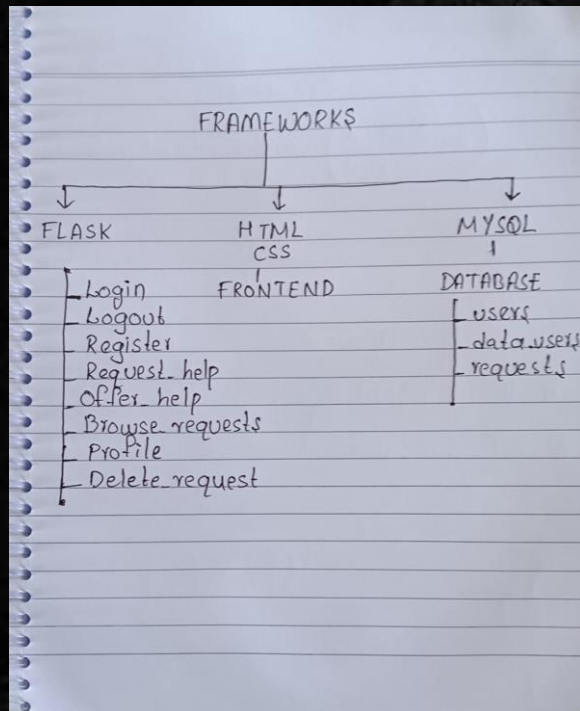 FRAMEWORKS
FLASK
Login
Logout
Register
Request_help
Offer_help
Browse_requests
Profile
Delete_request
HTML
CSS
FRONTEND
MYSQL
DATABASE
users
data_users
requests